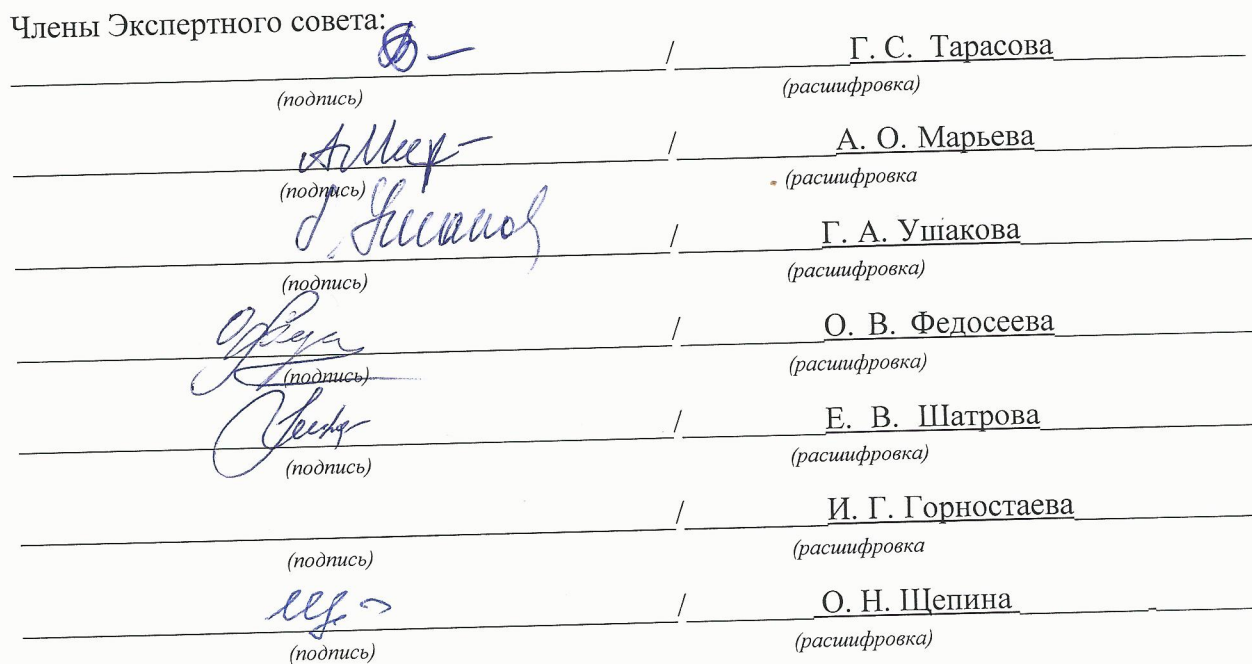 Члены Экспертного совета:
/ Г. С. Тарасова
(подпись) (расшифровка)
/ А. О. Марьева
(подпись) (расшифровка
/ Г. А. Ушакова
(подпись) (расшифровка)
/ О. В. Федосеева
(подпись) (расшифровка)
/ Е. В. Шатрова
(подпись) (расшифровка)
/ И. Г. Горностаева
(подпись) (расшифровка
/ О. Н. Щепина
(подпись) (расшифровка)